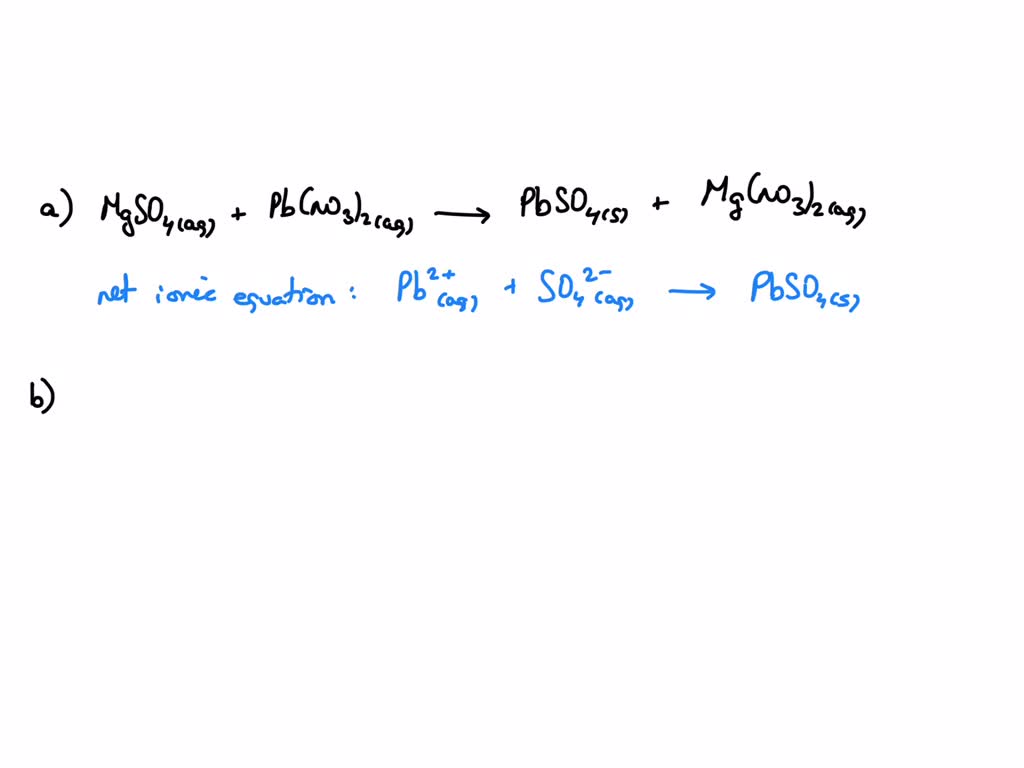 a) MgSO₄(aq) + Pb(NO₃)₂(aq) → PbSO₄(s) + Mg(NO₃)₂(aq)
net ionic equation : Pb²⁺(aq) + SO₄²⁻(aq) → PbSO₄(s)
b)